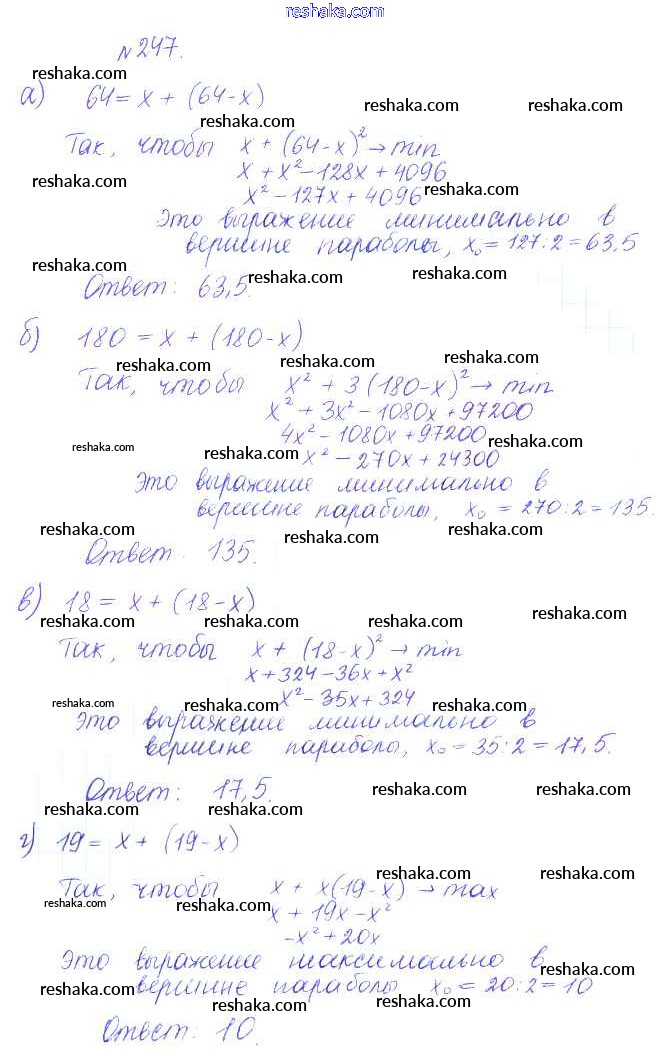 reshaka.com
№247.
reshaka.com
а) 64 = x + (64-x)
reshaka.com reshaka.com
reshaka.com
Так, чтобы x + (64-x)² → min
reshaka.com
x + x² - 128x + 4096
reshaka.com
x² - 127x + 4096
reshaka.com
Это выражение минимально в
вершине параболы, x₀ = 127:2 = 63,5
reshaka.com reshaka.com reshaka.com
Ответ: 63,5.
б) 180 = x + (180-x)
reshaka.com reshaka.com
Так, чтобы x² + 3(180-x)² → min
reshaka.com
x² + 3x² - 1080x + 97200
4x² - 1080x + 97200
reshaka.com reshaka.com reshaka.com
x² - 270x + 24300
Это выражение минимально в
вершине параболы, x₀ = 270:2 = 135.
reshaka.com reshaka.com reshaka.com
Ответ: 135.
reshaka.com
в) 18 = x + (18-x)
reshaka.com
reshaka.com reshaka.com reshaka.com
Так, чтобы x + (18-x)² → min
x + 324 - 36x + x²
x² - 35x + 324
reshaka.com reshaka.com reshaka.com
Это выражение минимально в
вершине параболы, x₀ = 35:2 = 17,5.
Ответ: 17,5.
reshaka.com reshaka.com
reshaka.com reshaka.com
г) 19 = x + (19-x)
reshaka.com reshaka.com
Так, чтобы x + x(19-x) → max
reshaka.com reshaka.com
x + 19x - x²
reshaka.com
-x² + 20x
Это выражение максимально в
reshaka.com
вершине параболы x₀ = 20:2 = 10
reshaka.com
reshaka.com reshaka.com
Ответ: 10.